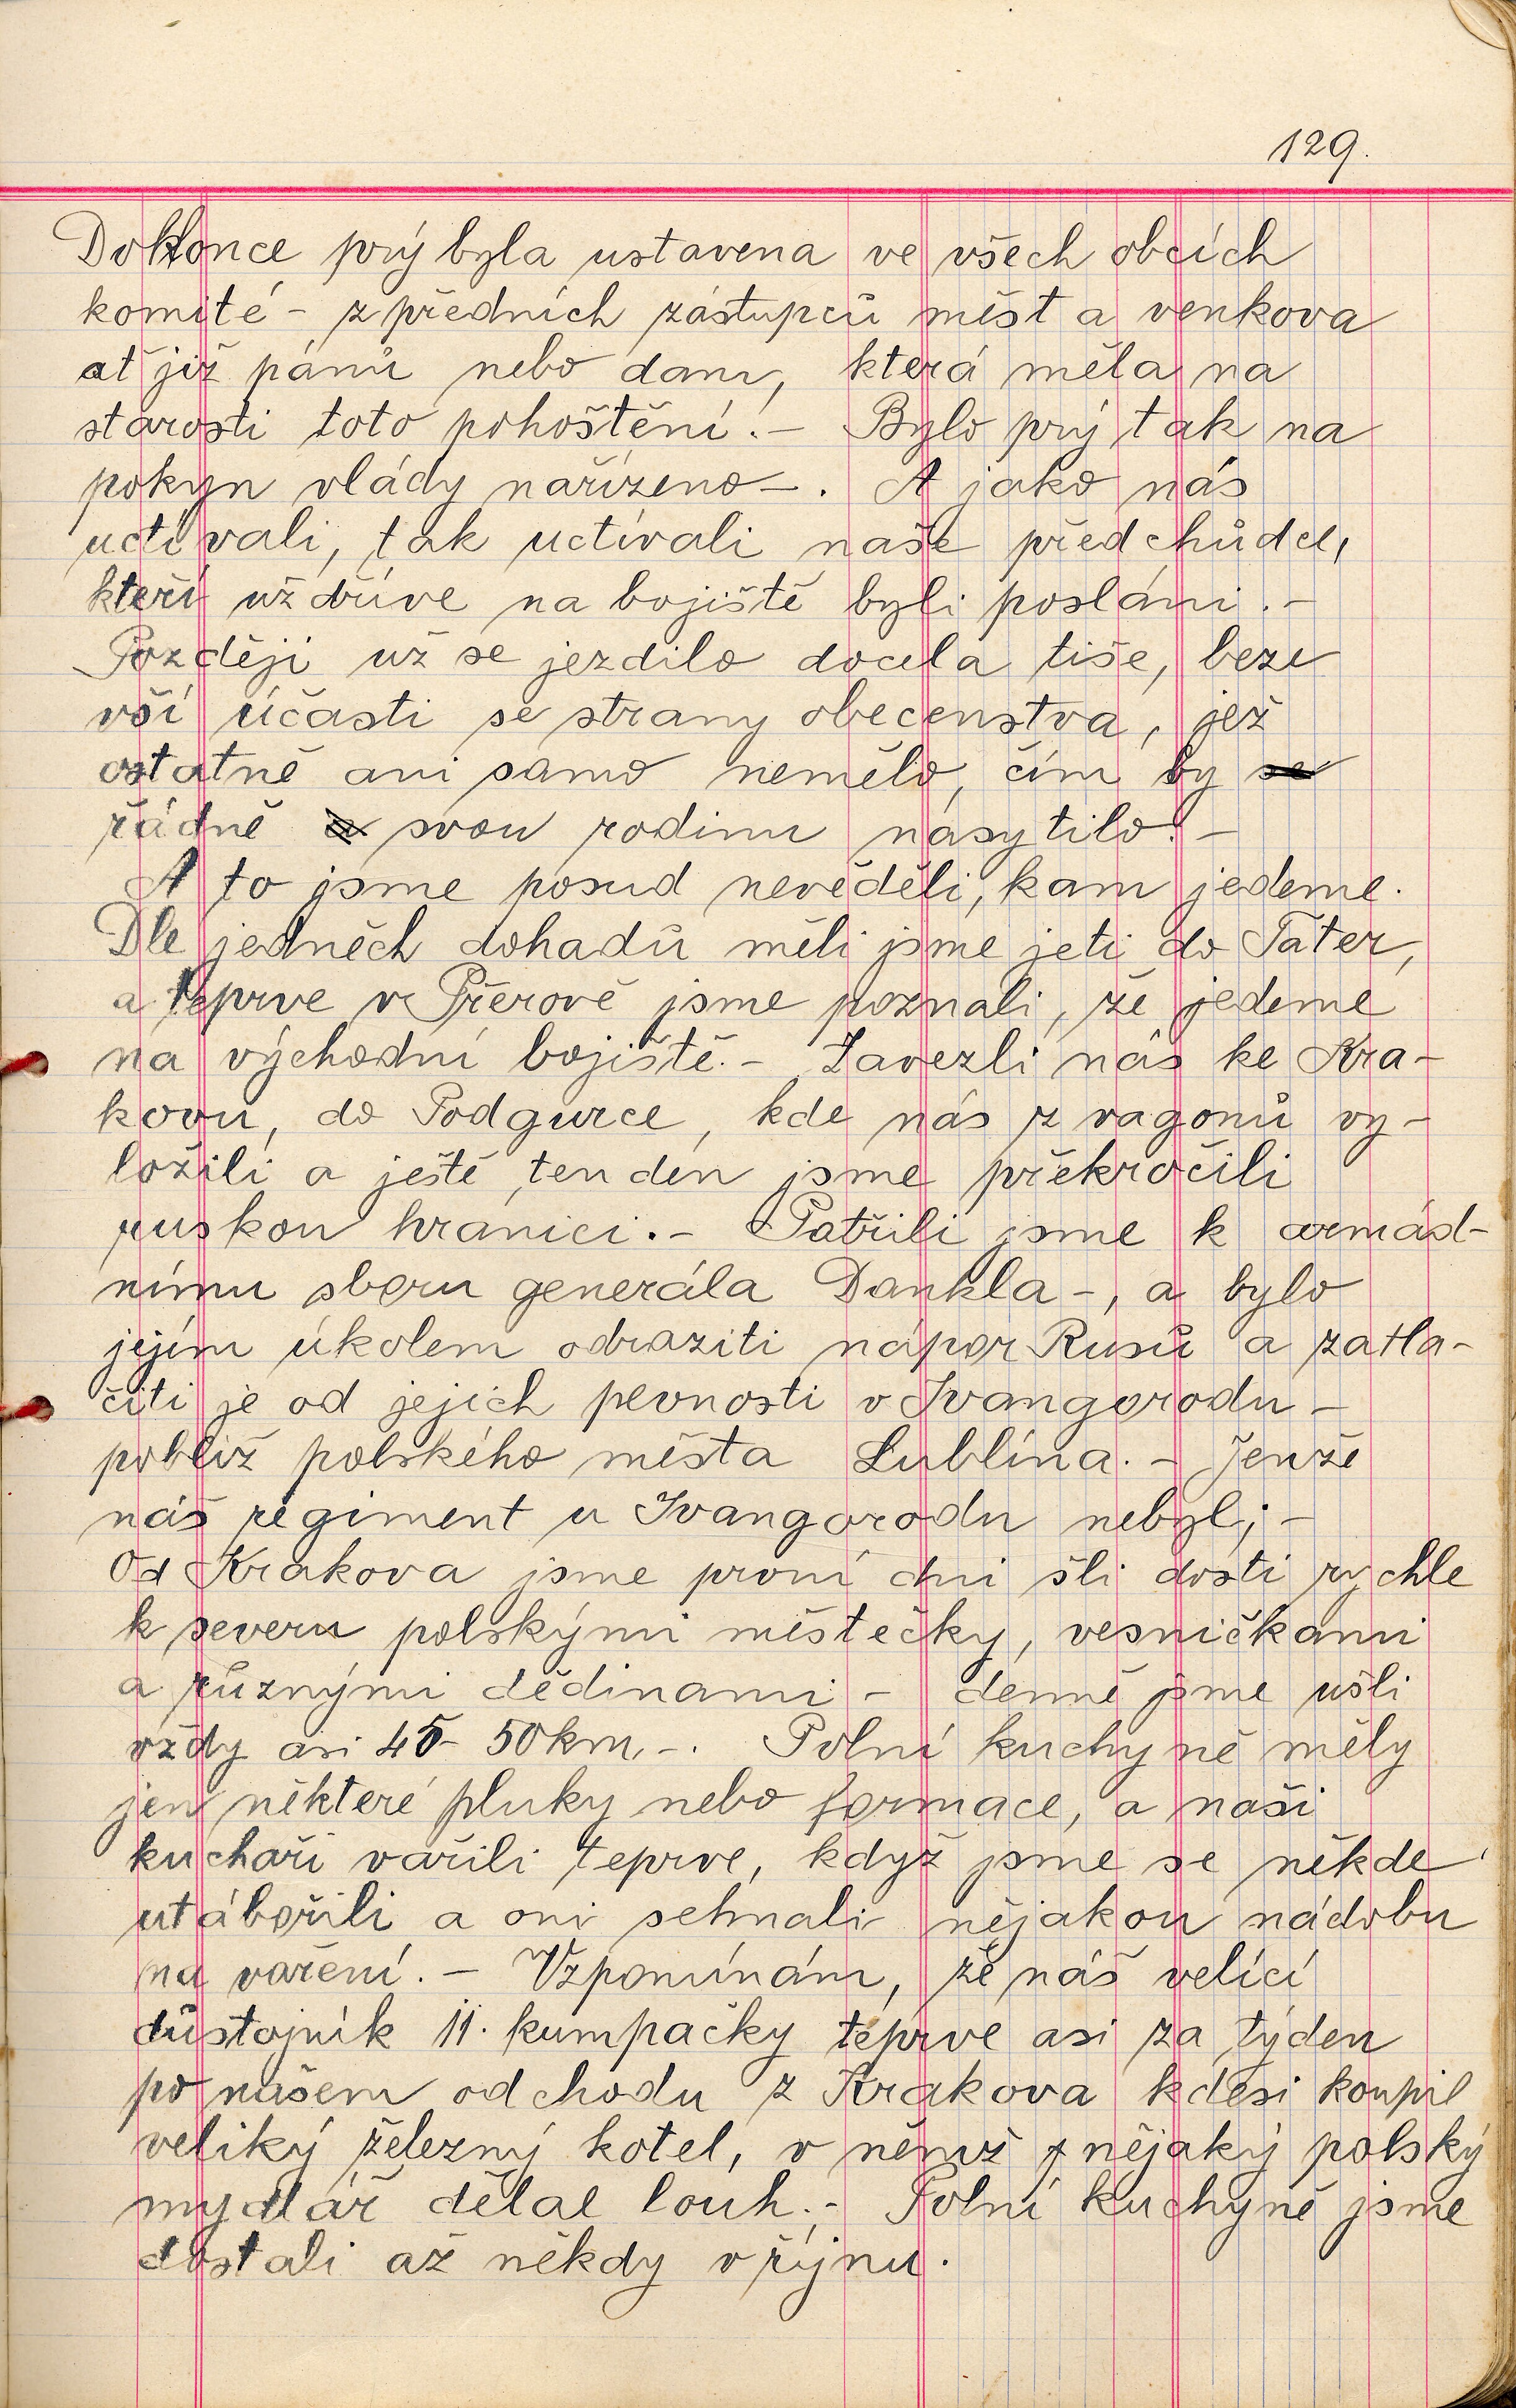 129.
Dokonce prý byla ustavena ve všech obcích
komité - z předních zástupců měst a venkova
ať již pánů nebo dam, která měla na
starosti toto pohoštění. - Bylo prý tak na
pokyn vlády nařízeno -. A jako nás
uctívali, tak uctívali naše předchůdce,
kteří už dříve na bojiště byli posláni. -
Později už se jezdilo docela tiše, beze
vší účasti se strany obecenstva, jež
ostatně ani samo nemělo, čím by se
řádně a svou rodinu nasytilo. -
A to jsme posud nevěděli, kam jedeme.
Dle jedněch dohadů měli jsme jeti do Tater,
a teprve v Přerově jsme poznali, že jedeme
na východní bojiště. - Zavezli nás ke Kra-
kovu, do Podgurce, kde nás z vagonů vy-
ložili a ještě ten den jsme překročili
ruskou hranici. - Patřili jsme k armád-
nímu sboru generála Dankla -, a bylo
jejím úkolem odraziti nápor Rusů a zatla-
čiti je od jejich pevnosti v Ivangorodu -
poblíž polského města Lublína. - Jenže
náš regiment u Ivangorodu nebyl; -
Od Krakova jsme první dni šli dosti rychle
k severu polskými městečky, vesničkami
a různými dědinami - denně jsme ušli
vždy asi 45 - 50 km, -. Polní kuchyně měly
jen některé pluky nebo formace, a naši
kuchaři vařili teprve, když jsme se někde
utábořili a oni sehnali nějakou nádobu
na vaření. - Vzpomínám, že náš velící
důstojník 11. kumpačky teprve asi za týden
po našem odchodu z Krakova kdesi koupil
veliký železný kotel, v němž nějaký polský
mydlář dělal louh. - Polní kuchyně jsme
dostali až někdy v říjnu.